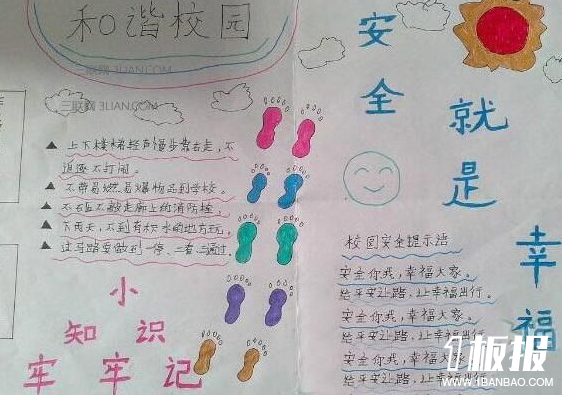 和谐校园
三联网 3LIAN.COM
三联网 3LIAN.COM
▲ 上下楼梯轻声慢步靠右走，不
追逐不打闹。
▲ 不带易燃易爆物品到学校。
▲ 不乱
▲ 下雨天，不到有积水的地方玩。
▲ 过马路要做到一停、二看、三通过。
小
知识
牢牢记
安全
就是
幸福
校园安全提示语
安全你我，幸福大家。
给平安让路，让幸福出行。
给平安让路，让幸福出行
安全你我，幸福大家。
给平安让路，让幸福出行
1板报
WWW.1BANBAO.COM